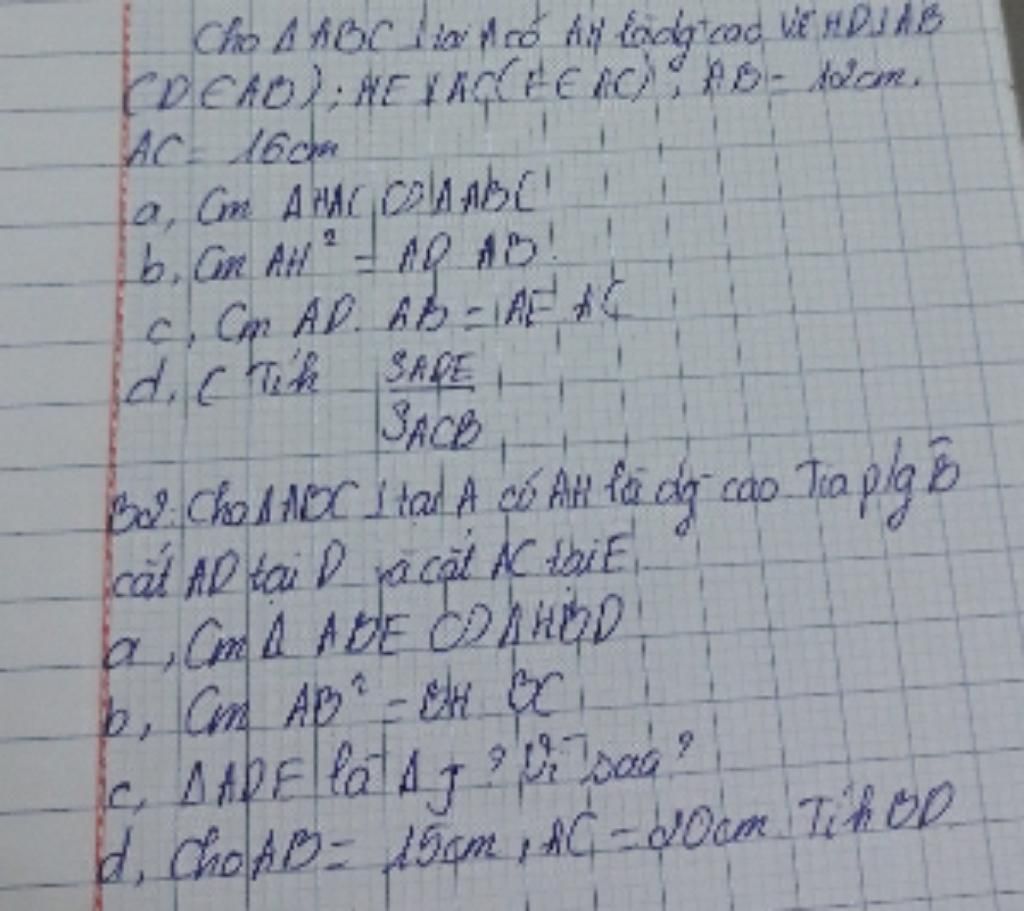 Cho Δ ABC ⊥ tại A có AH là đg cao, vẽ HD⊥AB
(D∈AB); HE⊥AC(E∈AC); AB = 12cm.
AC = 16cm
a, Cm ΔHAC ∽ ΔABC
b, Cm AH² = AD AB
c, Cm AD. AB = AE AC
d, ( Tíh SADE
SACB
B2: Cho ΔABC ⊥ tại A có AH là đg cao Tia p/g B̂
cắt AD tại D và cắt AC tại E
a, Cm Δ ABE ∽ ΔHBD
b, Cm AB² = BH BC
c, ΔADE là Δ j? Vì sao?
d, Cho AB = 15cm, AC = 20cm Tíh BD